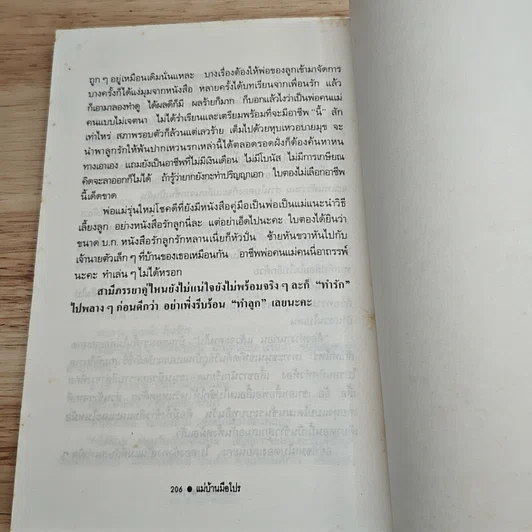 ถูก ๆ อยู่เหมือนเดิมนั่นแหละ บางเรื่องต้องให้พ่อของลูกเข้ามาจัดการ
บางครั้งก็ได้แง่มุมจากหนังสือ หลายครั้งได้บทเรียนจากเพื่อนรัก แล้ว
ก็เอามาลองทำดู ได้ผลดีก็มี ผลร้ายก็มาก ก็บอกแล้วไงว่าเป็นพ่อคนแม่
คนแบบไม่เจตนา ไม่ได้ร่ำเรียนและเตรียมพร้อมที่จะมีอาชีพ "นี้" สัก
เท่าไหร่ สภาพรอบตัวก็ล้วนแต่เลวร้าย เต็มไปด้วยหุบเหวอบายมุข จะ
นำพาลูกรักให้พ้นปากเหวนรกเหล่านี้ได้ตลอดรอดฝั่งก็ต้องค้นหาหน
ทางเอาเอง แถมยังเป็นอาชีพที่ไม่มีเงินเดือน ไม่มีโบนัส ไม่มีการเกษียณ
คิดจะลาออกก็ไม่ได้ ถ้ารู้ว่ายากยังกะทำปริญญาเอก ใบตองไม่เลือกอาชีพ
นี้เด็ดขาด
พ่อแม่รุ่นใหม่โชคดีที่ยังมีหนังสือคู่มือเป็นพ่อเป็นแม่แนะนำวิธี
เลี้ยงลูก อย่างหนังสือรักลูกนี่ละ แต่อย่าเอ็ดไปนะคะ ใบตองได้ยินว่า
ขนาด บ.ก. หนังสือรักลูกรักหลานเนี่ยก็หัวปั่น ซ้ายหันขวาหันไปกับ
เจ้านายตัวเล็ก ๆ ที่บ้านของเธอเหมือนกัน อาชีพพ่อคนแม่คนนี่อาถรรพ์
นะคะ ทำเล่น ๆ ไม่ได้หรอก
สามีภรรยาคู่ไหนยังไม่แน่ใจยังไม่พร้อมจริง ๆ ละก็ "ทำรัก"
ไปพลาง ๆ ก่อนดีกว่า อย่าเพิ่งรีบร้อน "ทำลูก" เลยนะคะ
206 ● แม่บ้านมือโปร